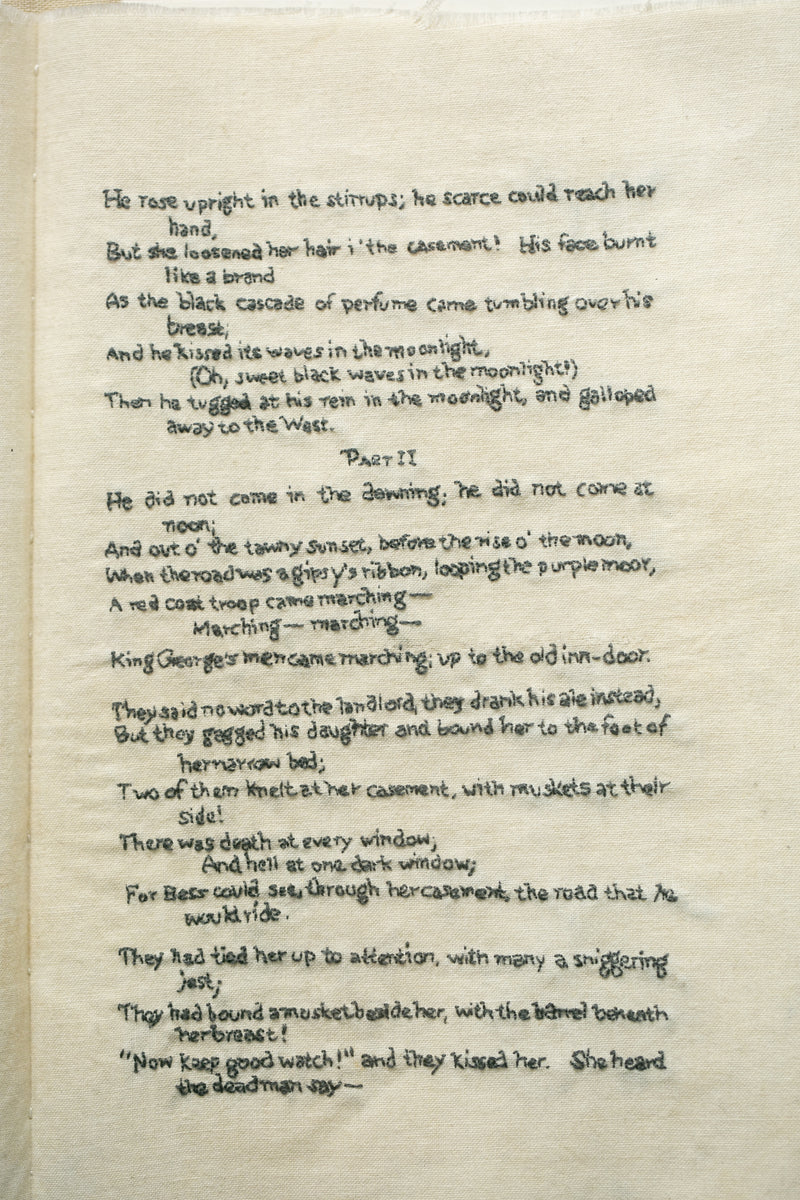 He rose upright in the stirrups; he scarce could reach her
hand,
But she loosened her hair i' the casement! His face burnt
like a brand
As the black cascade of perfume came tumbling over his
breast;
And he kissed its waves in the moonlight,
(Oh, sweet black waves in the moonlight!)
Then he tugged at his rein in the moonlight, and galloped
away to the West.
PART II
He did not come in the dawning; he did not come at
noon;
And out o' the tawny sunset, before the rise o' the moon,
When the road was a gipsy's ribbon, looping the purple moor,
A red coat troop came marching—
Marching— marching—
King George's men came marching, up to the old inn-door.
They said no word to the landlord, they drank his ale instead,
But they gagged his daughter and bound her to the foot of
her narrow bed;
Two of them knelt at her casement, with muskets at their
side!
There was death at every window;
And hell at one dark window;
For Bess could see, through her casement, the road that he
would ride.
They had tied her up to attention, with many a sniggering
jest;
They had bound a musket beside her, with the barrel beneath
her breast!
"Now keep good watch!" and they kissed her. She heard
the dead man say—